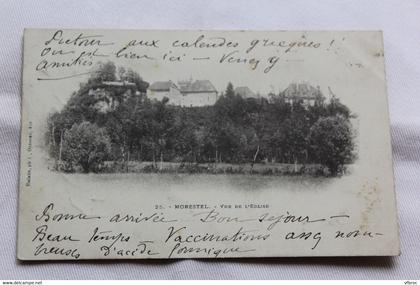 Retour aux Calendes grecques !
On est bien ici — Venez y
amitiés
25. - MORESTEL. - VUE DE L'ÉGLISE
Bonne arrivée Bon séjour —
Beau temps — Vaccinations assez nom-
breuses D'acide formique —